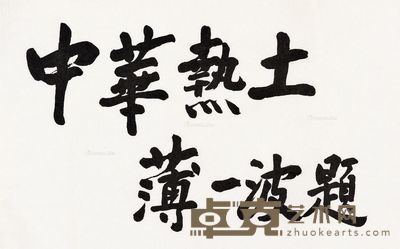 中華熱土
薄一波題
卓克艺术网
zhuokearts.com